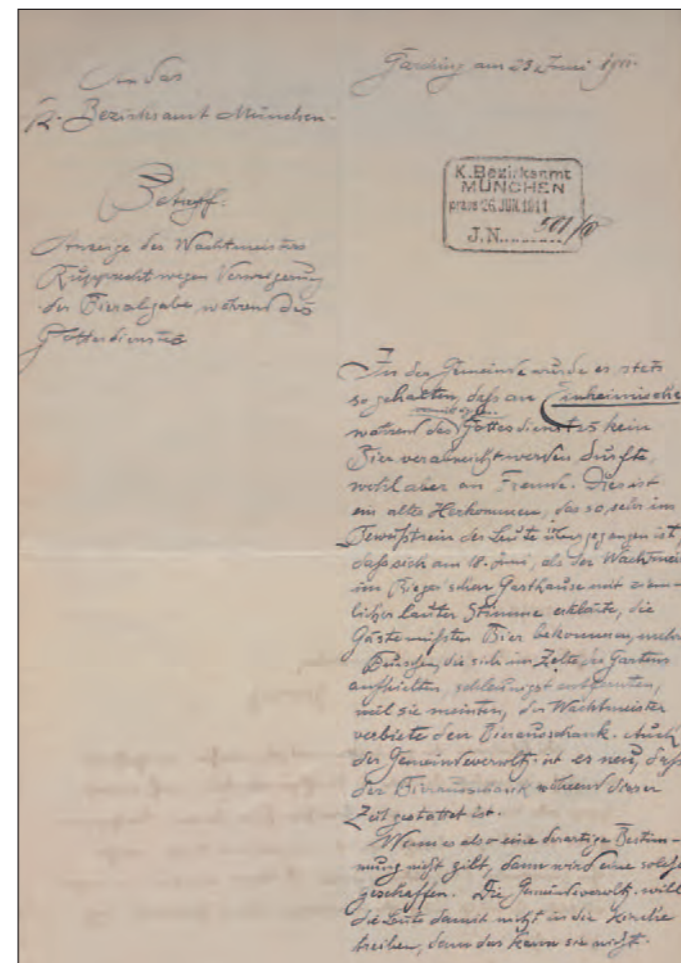 An das
K. Bezirksamt München.
Betreff:
Anzeige des Wachtmeisters
Rupprecht wegen Verweigerung
der Bierabgabe während des
Gottesdienstes
Garching am 23. Juni 1911.
K. Bezirksamt
MÜNCHEN
praes 26. JUN. 1911
J. N.
In der Gemeinde wurde es stets
so gehalten, daß an Einheimische
während des Gottesdienstes kein
Bier verabreicht werden durfte,
wohl aber an Fremde. Dies ist
ein altes Herkommen, das so sehr im
Bewußtsein der Leute übergegangen ist,
daß sich am 18. Juni, als der Wachtmei
im Rieger'schen Gasthause mit ziem-
licher lauter Stimme erklärte, die
Gäste müßten Bier bekommen, mehr
Burschen, die sich im Zelte des Gartens
aufhielten, schleunigst entfernten,
weil sie meinten, der Wachtmeister
verbiete den Bierausschank. Auch
der Gemeindeverwltg. ist es neu, daß
der Bierausschank während dieser
Zeit gestattet ist.
Wenn es also eine derartige Bestim-
mung nicht gilt, dann wird eine solche
geschaffen. Die Gemeindeverwltg. will
die Leute damit nicht in die Kirche
treiben, denn das kann sie nicht.